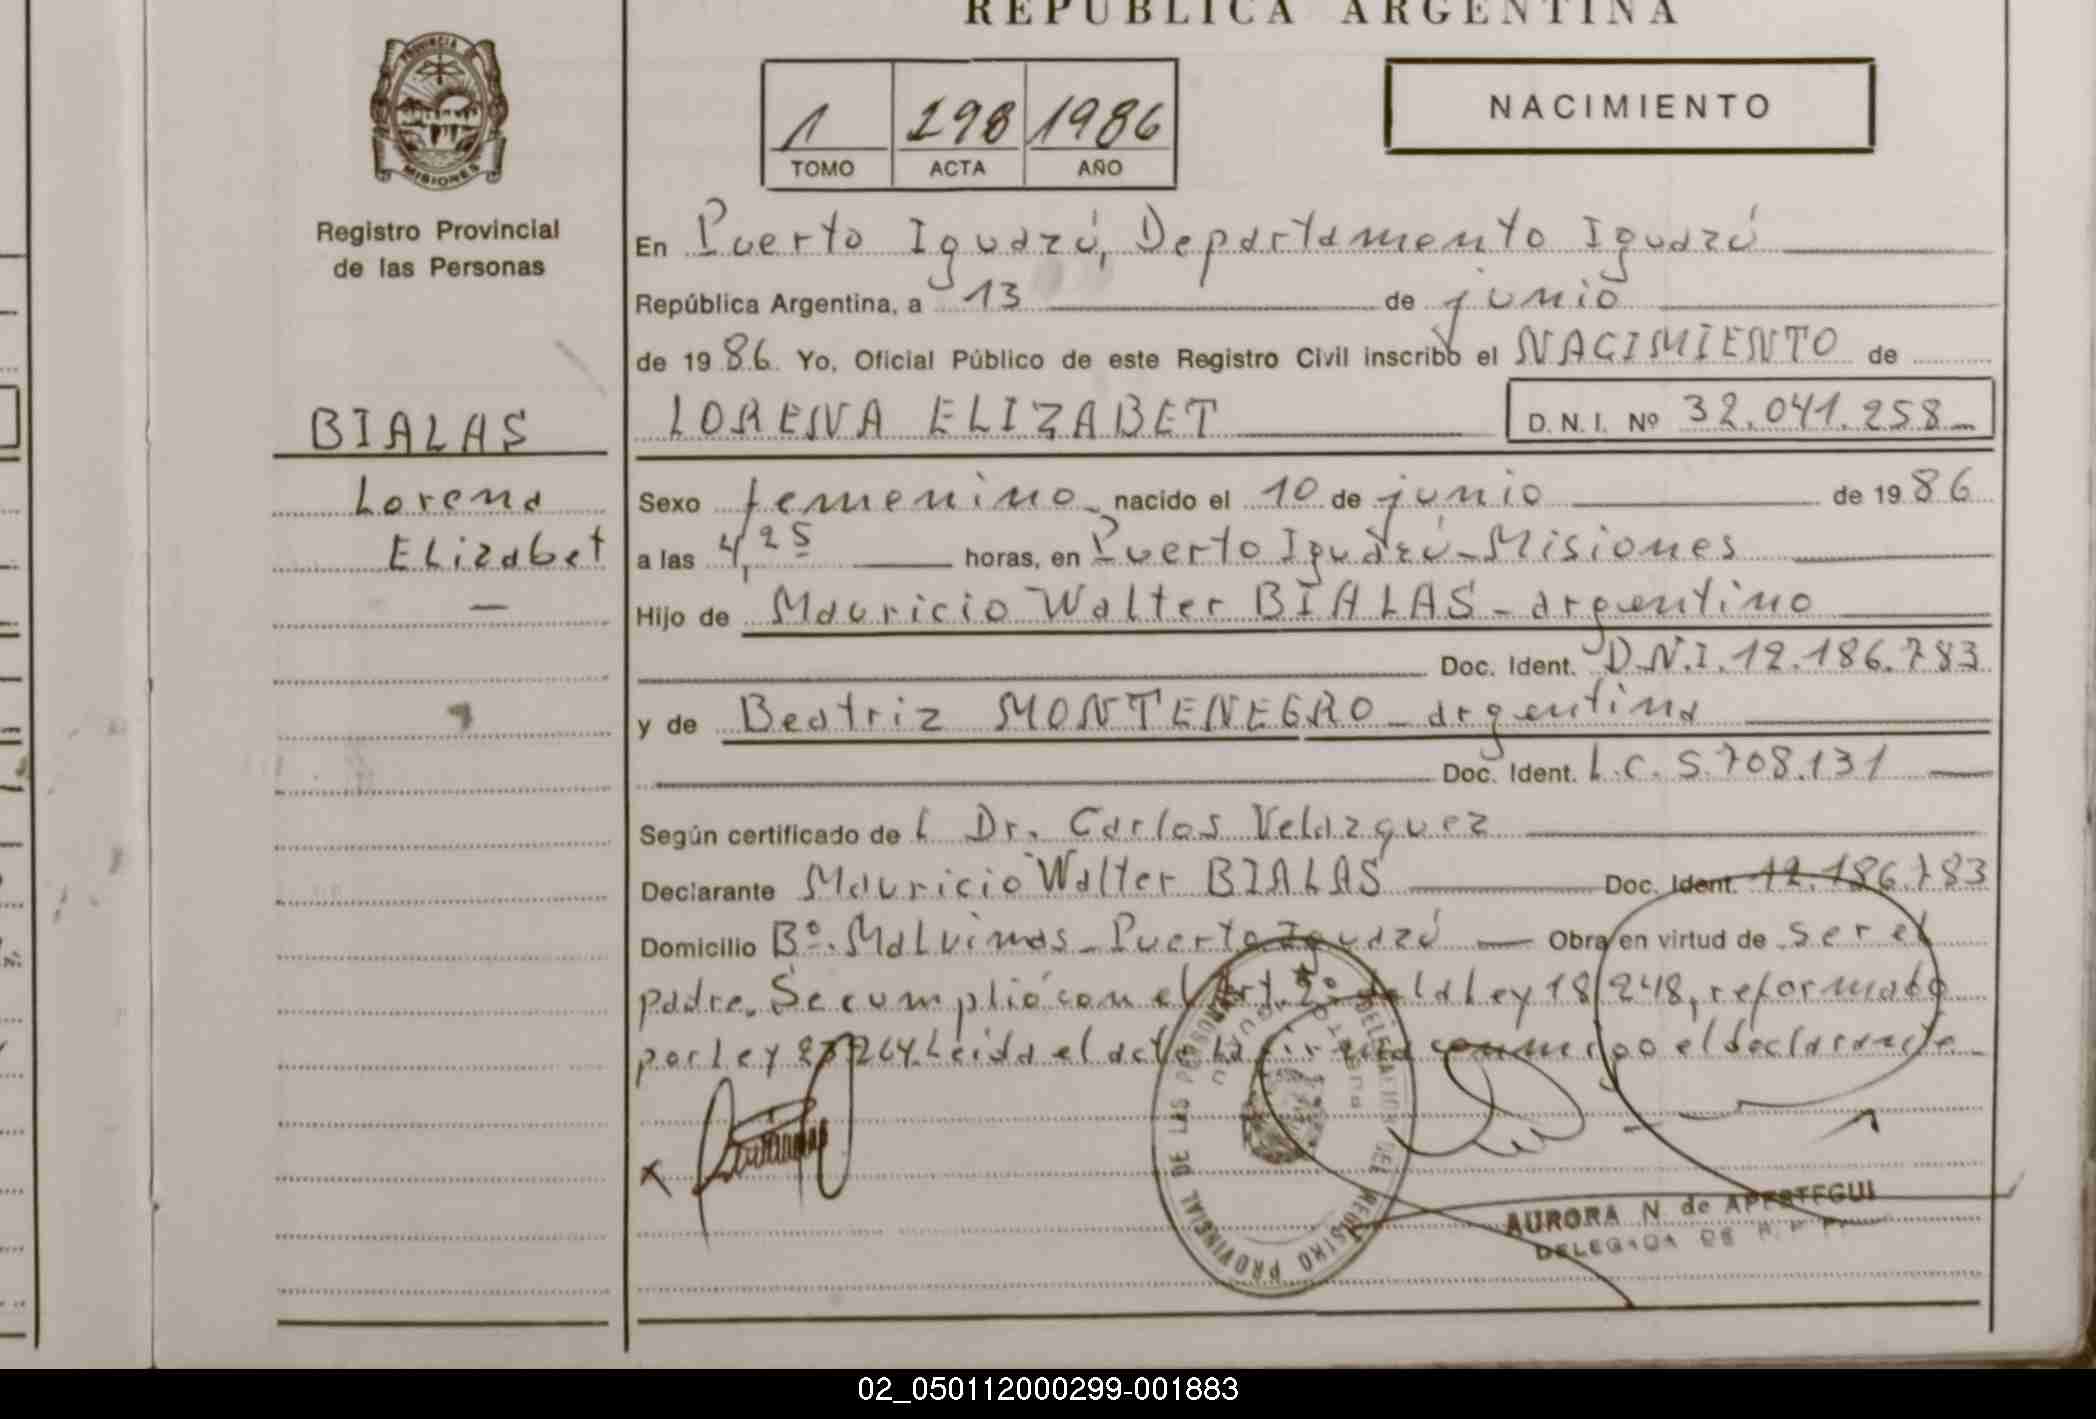 REPUBLICA ARGENTINA
PROVINCIA DE
MISIONES
Registro Provincial
de las Personas
1 298 1986
TOMO ACTA AÑO
NACIMIENTO
En Puerto Iguazú, Departamento Iguazú
República Argentina, a 13 de junio
de 1986. Yo, Oficial Público de este Registro Civil inscribo el NACIMIENTO de
BIALAS
Lorena
Elizabet
LORENA ELIZABET D.N.I. Nº 32.041.258
Sexo femenino nacido el 10 de junio de 1986
a las 4,25 horas, en Puerto Iguazú - Misiones
Hijo de Mauricio Walter BIALAS - argentino
Doc. Ident. D.N.I. 12.186.783
y de Beatriz MONTENEGRO - argentina
Doc. Ident. L.C. 5.708.131
Según certificado de l Dr. Carlos Velazquez
Declarante Mauricio Walter BIALAS Doc. Ident. 12.186.783
Domicilio Bº. Malvinas - Puerto Iguazú Obra en virtud de ser el
padre. Se cumplió con el Art. 2º de la Ley 18.248, reformado
por ley 23264. Leida el acta la firma conmigo el declarante
DELEGACION DEL REGISTRO PROVINSIAL DE LAS PERSONAS
AURORA N. de APESTEGUI
DELEGADA DE R. P. P.
02_050112000299-001883